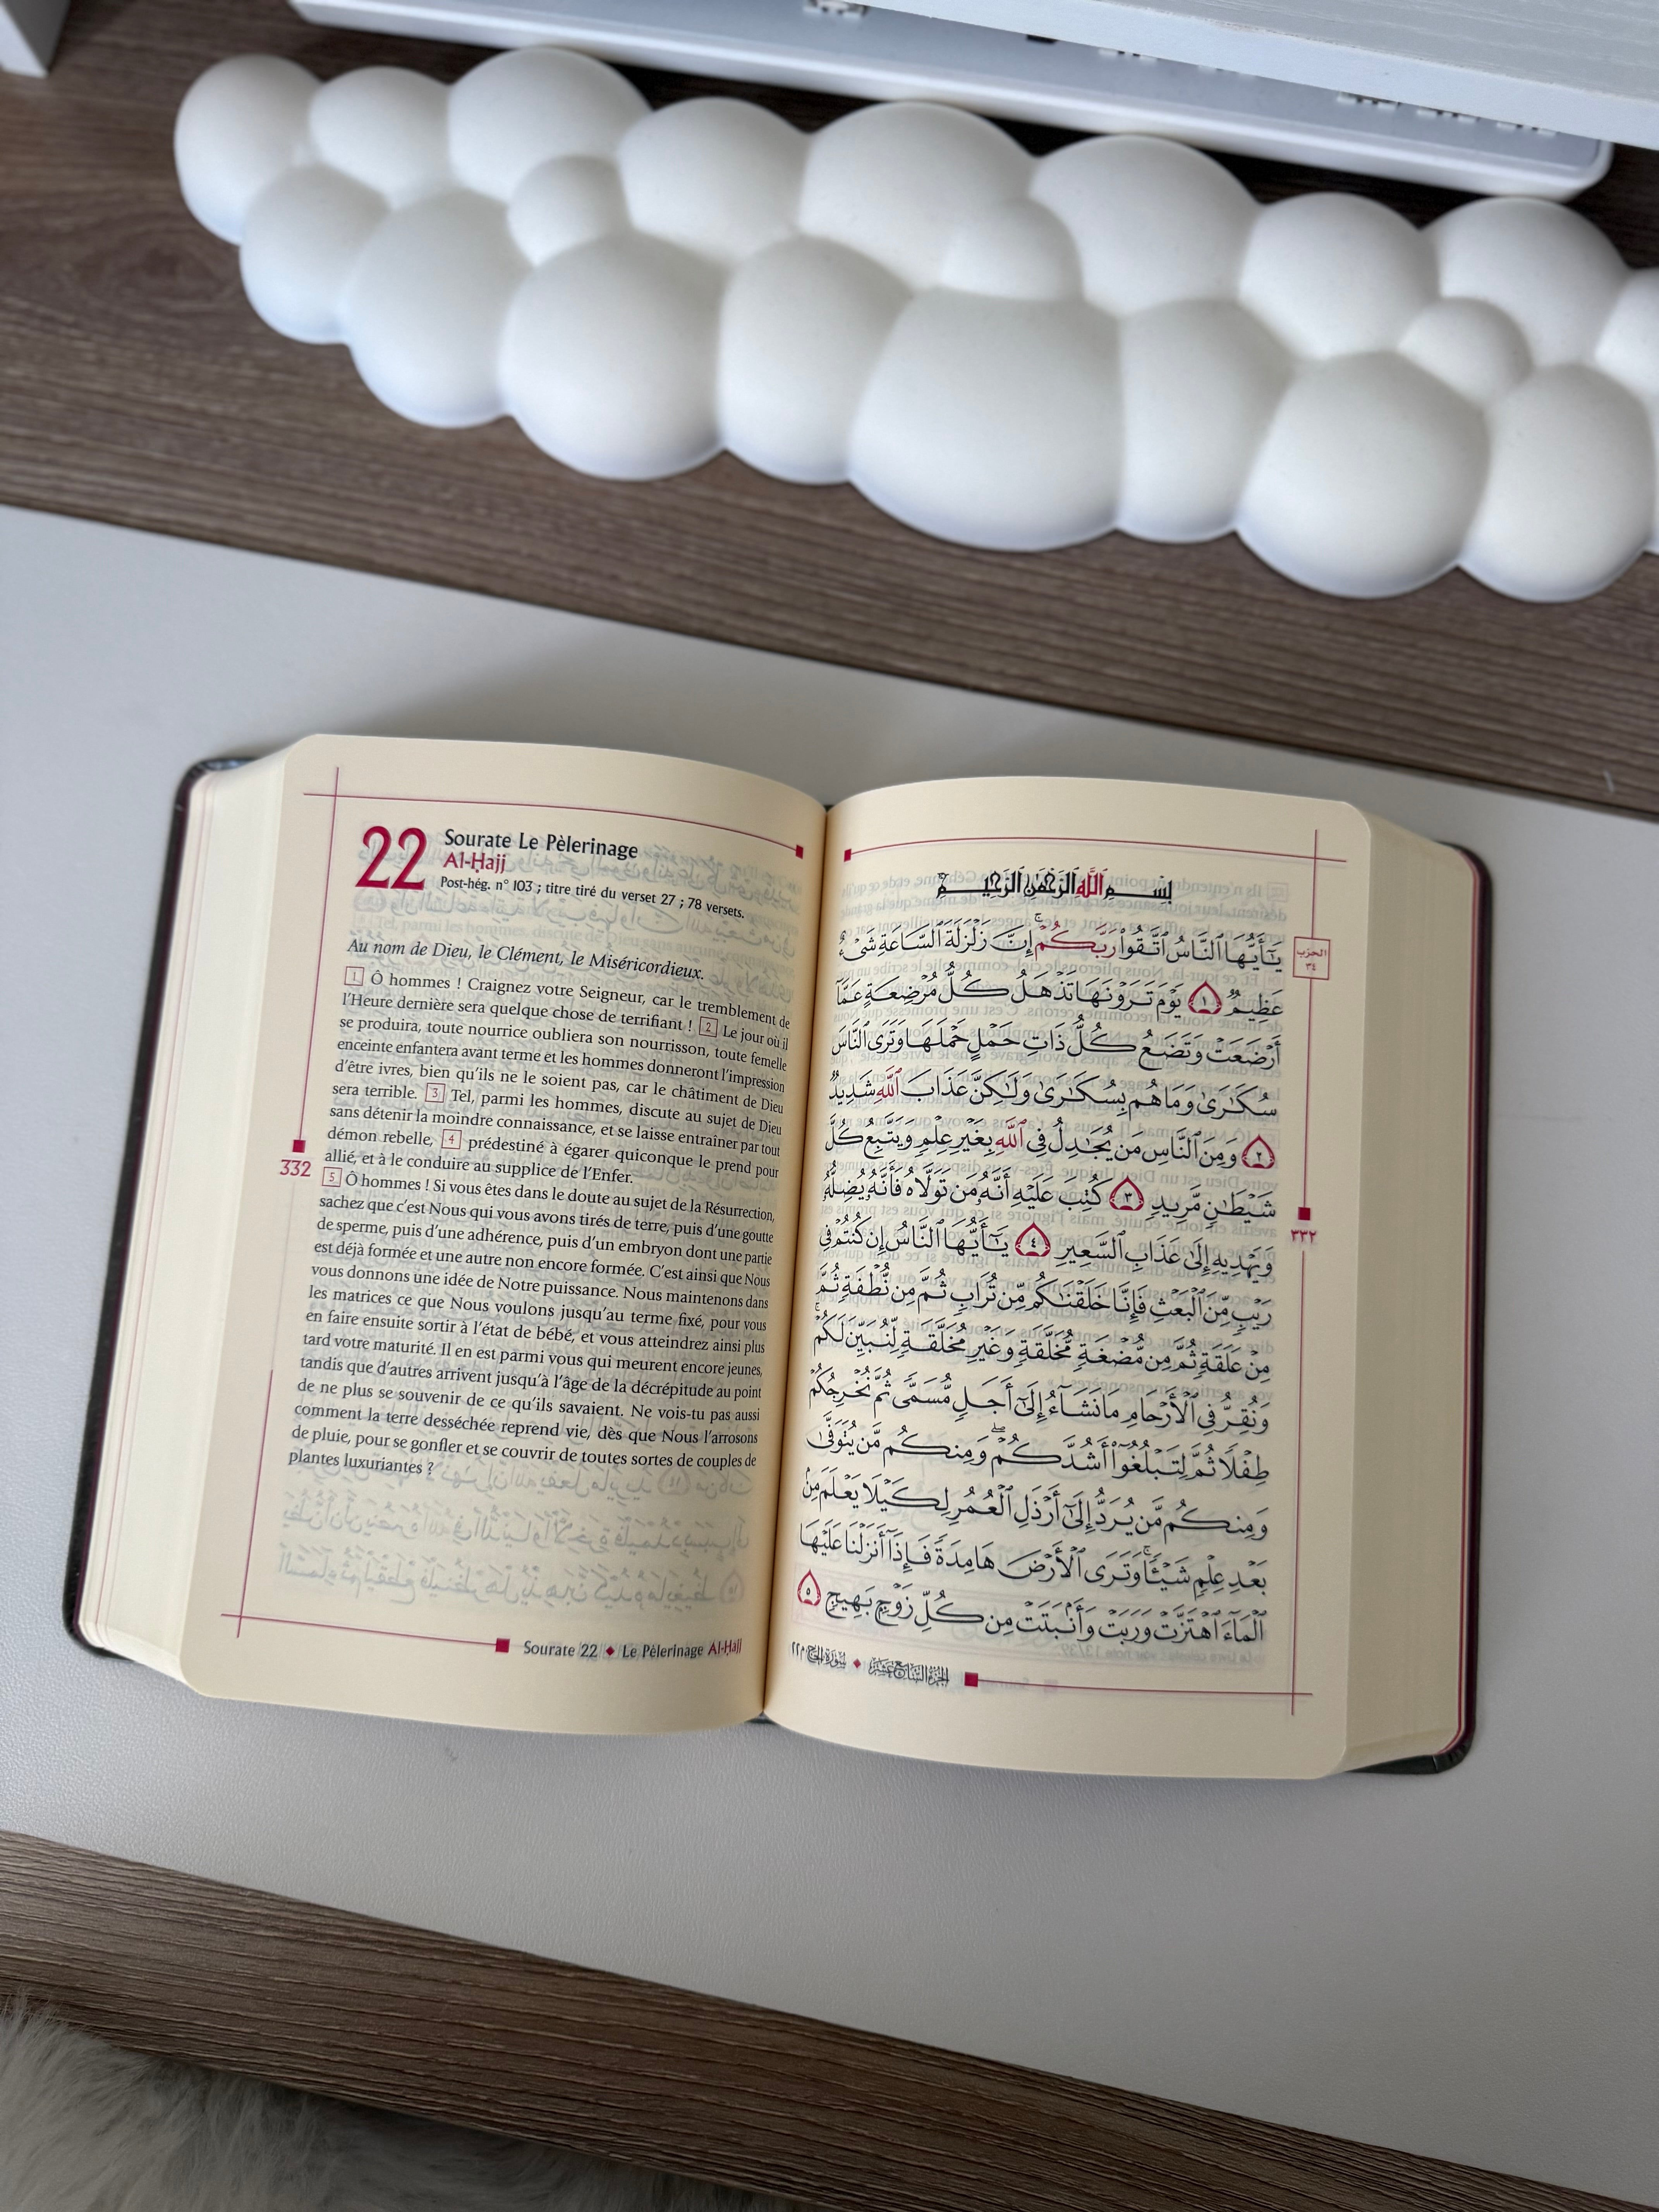 22
Sourate Le Pèlerinage
Al-Ḥajj
Post-hég. n° 103 ; titre tiré du verset 27 ; 78 versets.
Au nom de Dieu, le Clément, le Miséricordieux.
1 Ô hommes ! Craignez votre Seigneur, car le tremblement de
l'Heure dernière sera quelque chose de terrifiant ! 2 Le jour où il
se produira, toute nourrice oubliera son nourrisson, toute femelle
enceinte enfantera avant terme et les hommes donneront l'impression
d'être ivres, bien qu'ils ne le soient pas, car le châtiment de Dieu
sera terrible. 3 Tel, parmi les hommes, discute au sujet de Dieu
sans détenir la moindre connaissance, et se laisse entraîner par tout
démon rebelle, 4 prédestiné à égarer quiconque le prend pour
allié, et à le conduire au supplice de l'Enfer.
5 Ô hommes ! Si vous êtes dans le doute au sujet de la Résurrection,
sachez que c'est Nous qui vous avons tirés de terre, puis d'une goutte
de sperme, puis d'une adhérence, puis d'un embryon dont une partie
est déjà formée et une autre non encore formée. C'est ainsi que Nous
vous donnons une idée de Notre puissance. Nous maintenons dans
les matrices ce que Nous voulons jusqu'au terme fixé, pour vous
en faire ensuite sortir à l'état de bébé, et vous atteindrez ainsi plus
tard votre maturité. Il en est parmi vous qui meurent encore jeunes,
tandis que d'autres arrivent jusqu'à l'âge de la décrépitude au point
de ne plus se souvenir de ce qu'ils savaient. Ne vois-tu pas aussi
comment la terre desséchée reprend vie, dès que Nous l'arrosons
de pluie, pour se gonfler et se couvrir de toutes sortes de couples de
plantes luxuriantes ?
332
Sourate 22 ◆ Le Pèlerinage Al-Ḥajj
بِسْمِ ٱللَّهِ ٱلرَّحْمَٰنِ ٱلرَّحِيمِ
يَٰٓأَيُّهَا ٱلنَّاسُ ٱتَّقُوا۟ رَبَّكُمْ ۚ إِنَّ زَلْزَلَةَ ٱلسَّاعَةِ شَىْءٌ
عَظِيمٌ ١ يَوْمَ تَرَوْنَهَا تَذْهَلُ كُلُّ مُرْضِعَةٍ عَمَّآ
أَرْضَعَتْ وَتَضَعُ كُلُّ ذَاتِ حَمْلٍ حَمْلَهَا وَتَرَى ٱلنَّاسَ
سُكَٰرَىٰ وَمَا هُم بِسُكَٰرَىٰ وَلَٰكِنَّ عَذَابَ ٱللَّهِ شَدِيدٌ
٢ وَمِنَ ٱلنَّاسِ مَن يُجَٰدِلُ فِى ٱللَّهِ بِغَيْرِ عِلْمٍ وَيَتَّبِعُ كُلَّ
شَيْطَٰنٍ مَّرِيدٍ ٣ كُتِبَ عَلَيْهِ أَنَّهُۥ مَن تَوَلَّاهُ فَأَنَّهُۥ يُضِلُّهُۥ
وَيَهْدِيهِ إِلَىٰ عَذَابِ ٱلسَّعِيرِ ٤ يَٰٓأَيُّهَا ٱلنَّاسُ إِن كُنتُمْ فِى
رَيْبٍ مِّنَ ٱلْبَعْثِ فَإِنَّا خَلَقْنَٰكُم مِّن تُرَابٍ ثُمَّ مِن نُّطْفَةٍ ثُمَّ
مِنْ عَلَقَةٍ ثُمَّ مِن مُّضْغَةٍ مُّخَلَّقَةٍ وَغَيْرِ مُخَلَّقَةٍ لِّنُبَيِّنَ لَكُمْ ۚ
وَنُقِرُّ فِى ٱلْأَرْحَامِ مَا نَشَآءُ إِلَىٰٓ أَجَلٍ مُّسَمًّى ثُمَّ نُخْرِجُكُمْ
طِفْلًا ثُمَّ لِتَبْلُغُوٓا۟ أَشُدَّكُمْ ۖ وَمِنكُم مَّن يُتَوَفَّىٰ
وَمِنكُم مَّن يُرَدُّ إِلَىٰٓ أَرْذَلِ ٱلْعُمُرِ لِكَيْلَا يَعْلَمَ مِنۢ
بَعْدِ عِلْمٍ شَيْـًٔا ۚ وَتَرَى ٱلْأَرْضَ هَامِدَةً فَإِذَآ أَنزَلْنَا عَلَيْهَا
ٱلْمَآءَ ٱهْتَزَّتْ وَرَبَتْ وَأَنۢبَتَتْ مِن كُلِّ زَوْجٍۭ بَهِيجٍ ٥
الحزب
٣٤
٣٣٢
الجزء السابع عشر ◆ سورة الحج ٢٢